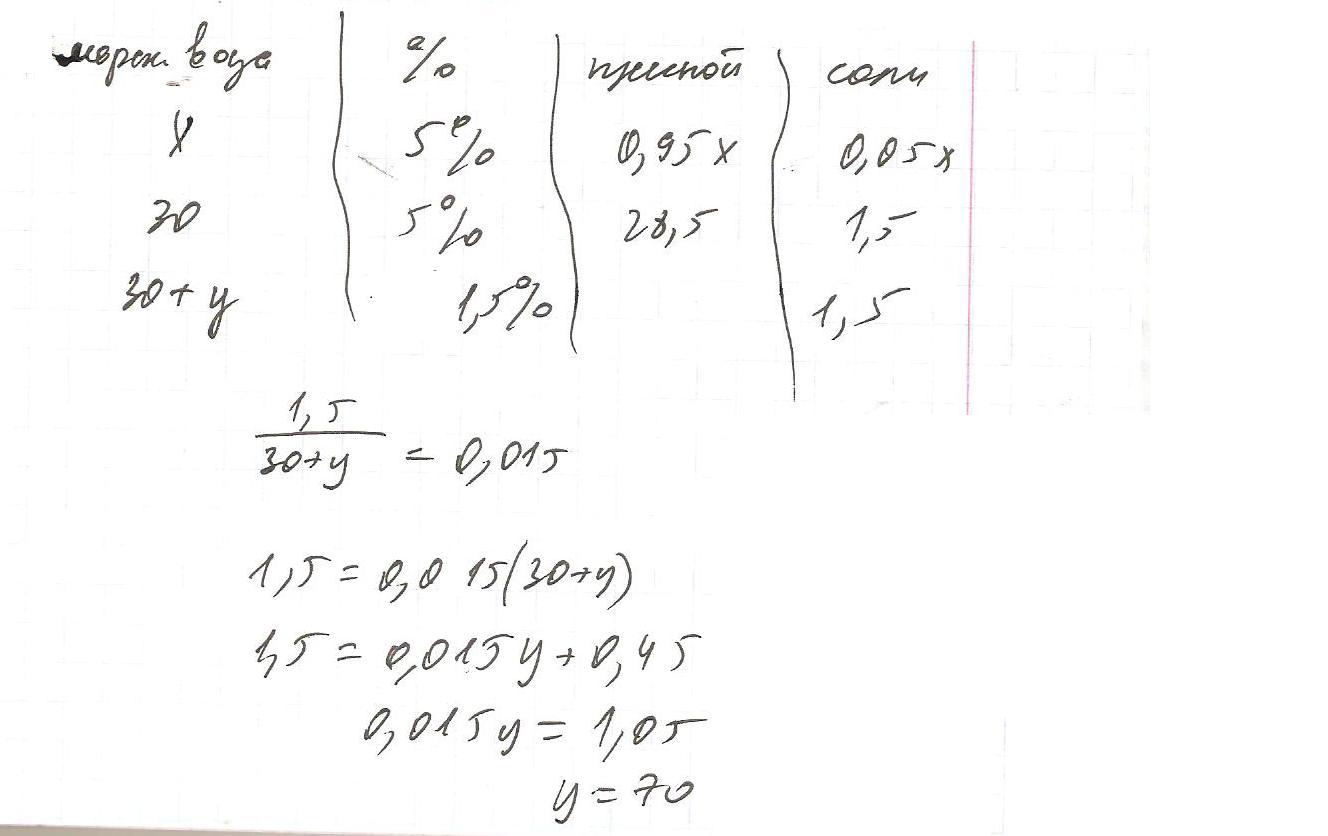 морск. вода % пресной соли
x 5% 0,95x 0,05x
30 5% 28,5 1,5
30+y 1,5% 1,5
1,5
30+y = 0,015
1,5 = 0,015(30+y)
1,5 = 0,015y + 0,45
0,015y = 1,05
y = 70